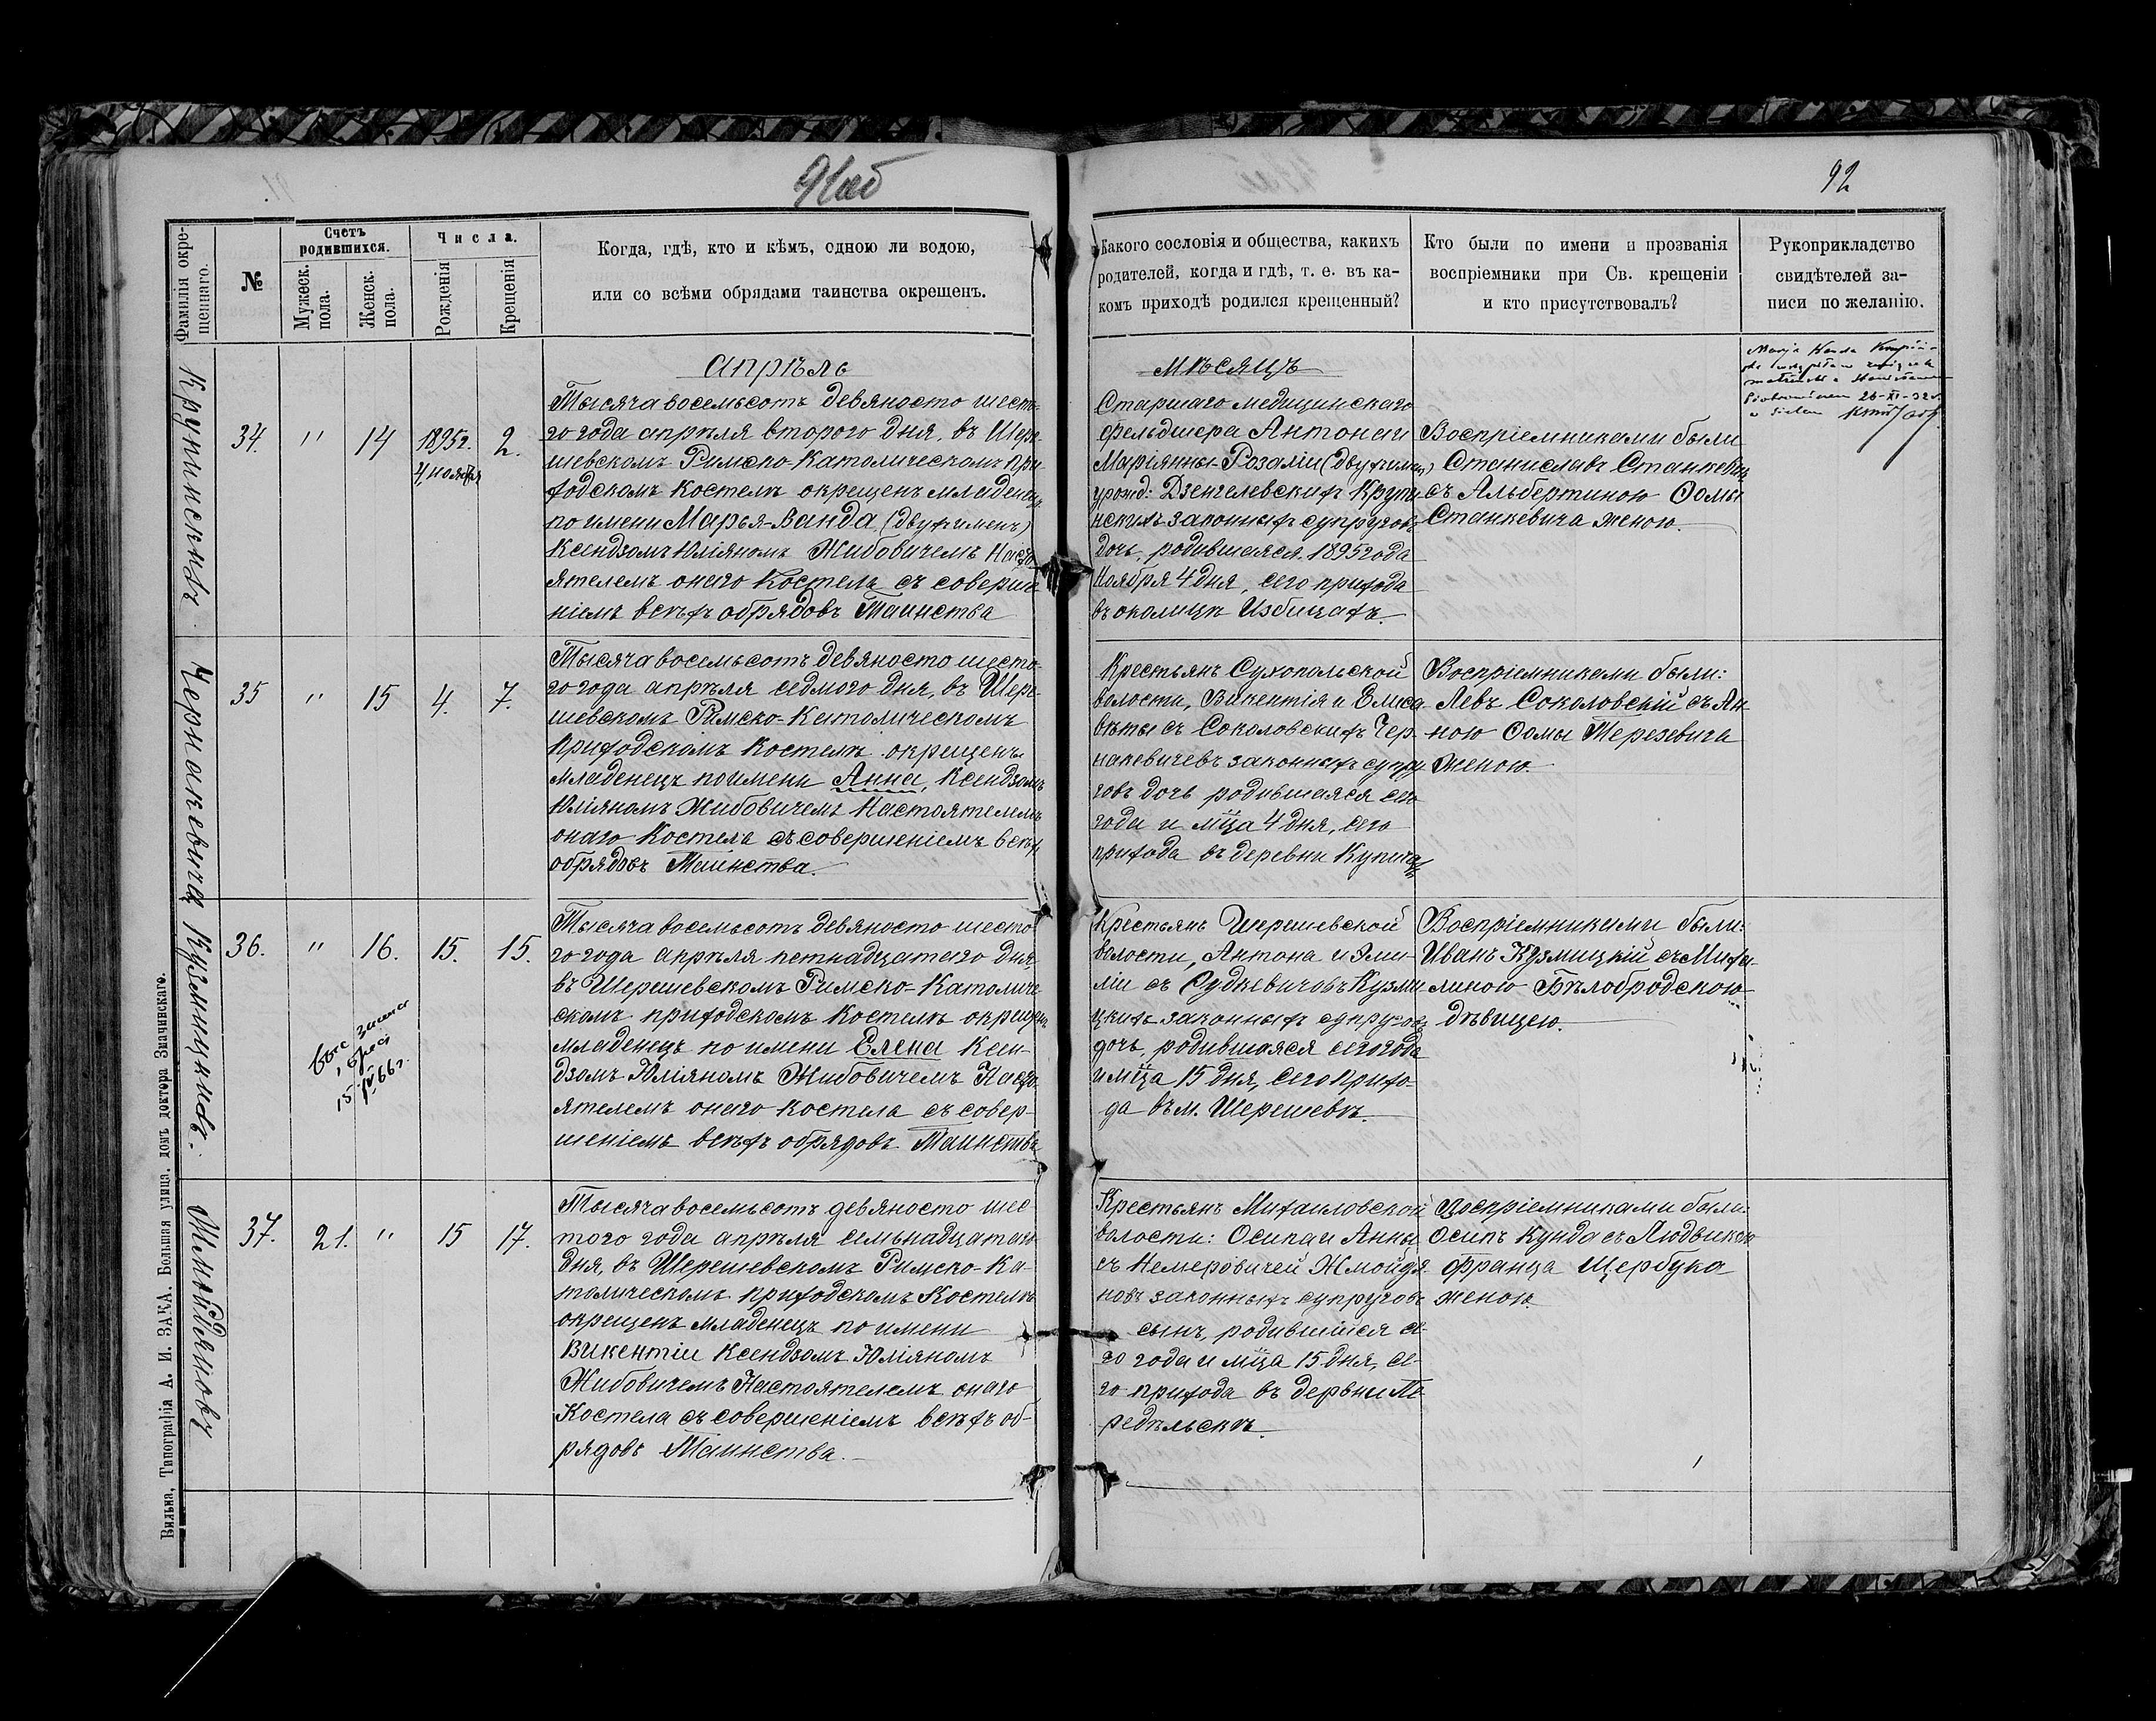 91об
92
Фамилія окре-
щеннаго.
№
Счетъ
родившихся.
Мужеск.
пола.
Женск.
пола.
Числа.
Рожденія
Крещенія
Когда, гдѣ, кто и кѣмъ, одною ли водою,
или со всѣми обрядами таинства окрещенъ.
Какого сословія и общества, какихъ
родителей, когда и гдѣ, т. е. въ ка-
комъ приходѣ родился крещенный?
Кто были по имени и прозванія
воспріемники при Св. крещеніи
и кто присутствовалъ?
Рукоприкладство
свидѣтелей за-
писи по желанію.
Апрѣль
Мѣсяцъ
Крупинскихъ
34.
"
14
1895г.
4 ноября
2.
Тысяча восемьсотъ девяносто шесто-
го года апрѣля второго дня, въ Шере-
шевскомъ Римско-Католическомъ при-
ходскомъ Костелѣ окрещенъ младенецъ
по имени Марья-Ванда (двухъ именъ)
Ксендзомъ Юліяномъ Жибовичемъ Насто-
ятелемъ онаго Костела съ соверше-
ніемъ всѣхъ обрядовъ Таинства
Старшаго медицинскаго
фельдшера Антона и
Маріянны-Розаліи (двухъ именъ)
урожд: Дзенгелевскихъ Крупи-
нскихъ законныхъ супруговъ
дочь, родившаяся 1895 года
Ноября 4 дня, сего прихода
въ околицѣ Избицахъ.
Воспріемниками были
Станиславъ Станкевичъ
съ Альбертиною Ѳомы
Станкевича женою.
Marja Wanda
26-XI-32 r.
Чернакевичъ
35
"
15
4.
7.
Тысяча восемьсотъ девяносто шесто-
го года апрѣля седмого дня, въ Шере-
шевскомъ Римско-Католическомъ
приходскомъ Костелѣ окрещенъ
младенецъ по имени Анна, Ксендзомъ
Юліяномъ Жибовичемъ Настоятелемъ
онаго Костела съ совершеніемъ всѣхъ
обрядовъ Таинства.
Крестьянъ Сухопольской
волости, Викентія и Елиса-
вѣты съ Соколовскихъ Чер-
накевичевъ законныхъ супру-
говъ дочь родившаяся сего
года и мѣца 4 дня, сего
прихода въ деревни Купичахъ
Воспріемниками были:
Левъ Соколовскій съ Ан-
ною Ѳомы Терезевича
женою.
Кузьмицкихъ.
36.
"
16.
15.
15.
15 IV 66 г.
Тысяча восемьсотъ девяносто шесто-
го года апрѣля петнадцатаго дня,
въ Шерешевскомъ Римско-Католиче-
скомъ приходскомъ Костелѣ окрещенъ
младенецъ по имени Елена Ксен-
дзомъ Юліяномъ Жибовичемъ Насто-
ятелемъ онаго Костела съ совер-
шеніемъ всѣхъ обрядовъ Таинства
Крестьянъ Шерешевской
волости, Антона и Эми-
ліи съ Судкевичовъ Кузми-
цкихъ законныхъ супруговъ
дочь, родившаяся сего года
и мѣца 15 дня, сего прихо-
да въ м. Шерешевѣ.
Воспріемниками были:
Иванъ Кузмицкій съ Миха-
линою Бѣлобродскою
дѣвицею.
Жмойдяновъ
37.
21.
"
15
17.
Тысяча восемьсотъ девяносто шес-
того года апрѣля семьнадцатаго
дня, въ Шерешевскомъ Римско-Ка-
толическомъ приходскомъ Костелѣ
окрещенъ младенецъ по имени
Викентіи Ксендзомъ Юліяномъ
Жибовичемъ Настоятелемъ онаго
Костела съ совершеніемъ всѣхъ об-
рядовъ Таинства.
Крестьянъ Михаиловской
волости: Осипа и Анны
съ Немеровичей Жмойдя-
новъ законныхъ супруговъ
сынъ, родившійся се-
го года и мѣца 15 дня, се-
го прихода въ дервни Пе-
редѣльскѣ.
Воспріемниками были:
Осипъ Кунда съ Людвикою
Франца Щербука
женою.
Вильна, Типографія А. И. ЗАКА. Большая улица, домъ доктора Значинскаго.